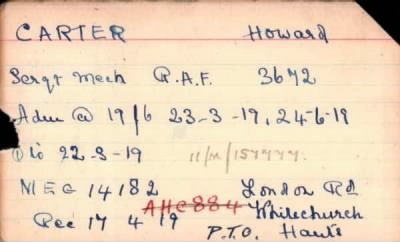 CARTER Howard
Sergt Mech R.A.F. 3672
Adm @ 19/6 23-3-19, 24-6-19
22-3-19 11/M/157777
MEG 14182 London Rd
AHC884 Whitechurch
Rec 17 4 19 P.T.O. Hants